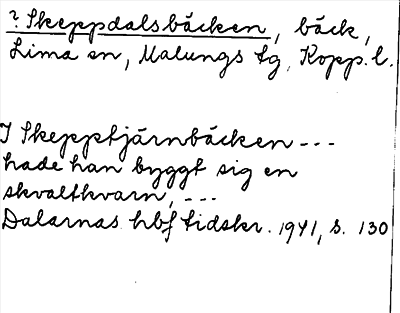 ? Skeppdalsbäcken, bäck,
Lima sn, Malungs tg, Kopp. l.
I Skepptjärnbäcken ---
hade han byggt sig en
skvaltkvarn, ---
Dalarnas hbf tidskr. 1941, s. 130